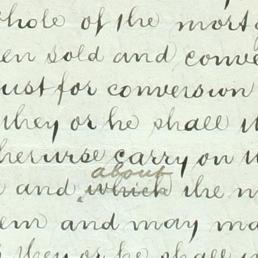 whole of the mort
en sold and conve
ust for conversion
they or he shall
carry on
about
and which the
em and may ma
they or he shall